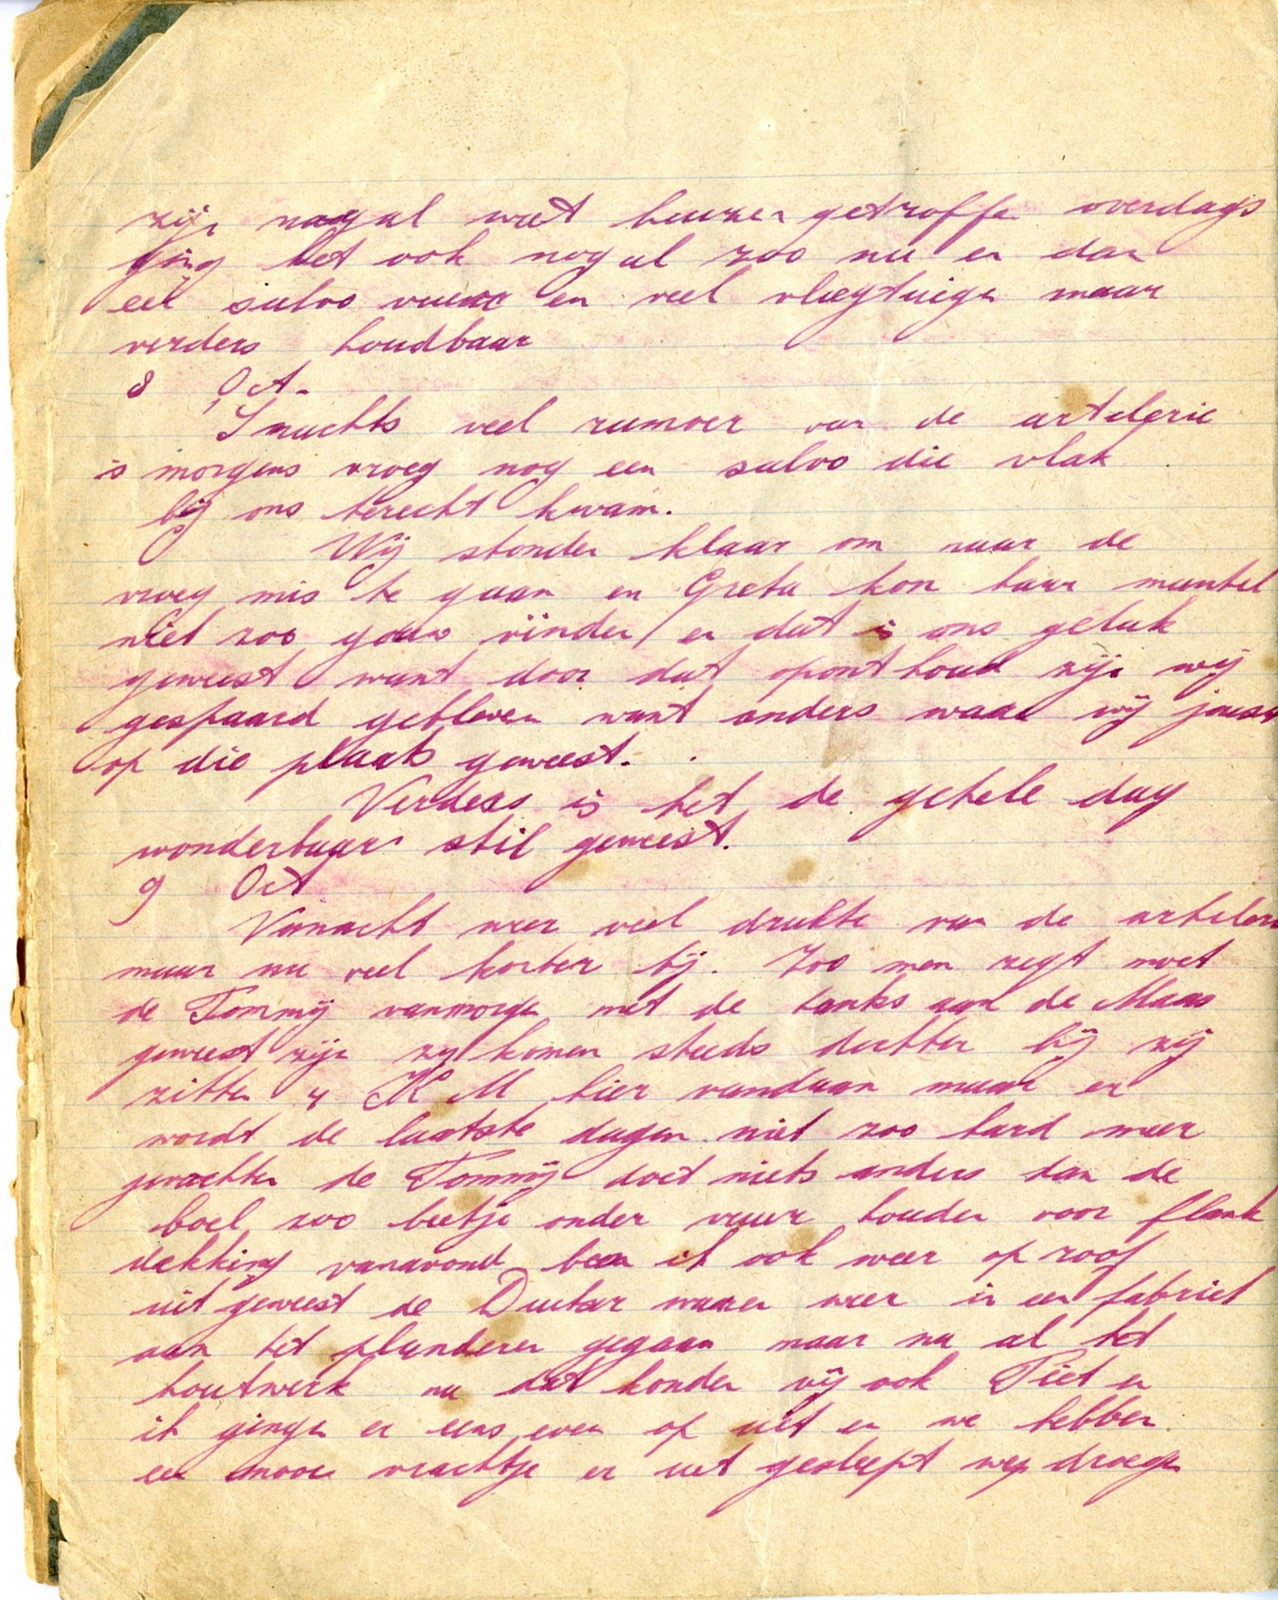 zijn nogal wat huuzen getroffen overdags
ging het ook nog al zoo nu en dan
eel salvo vuur en veel vliegtuigen maar
verders houdbaar
8 Oct.
S'nachts veel rumoer van de artelerie
's morgens vroeg nog een salvo die vlak
bij ons terecht kwam.
Wij stonden klaar om naar de
vroeg mis te gaan en Greta kon haar mantel
niet zoo gouw vinden en dat is ons geluk
geweest want door dat oponthoud zijn wij
gespaard gebleven want anders waare wij juist
op die plaats geweest.
Verders is het de gehele dag
wonderbaar stil geweest.
9 Oct
Vannacht weer veel drukte van de artelerie
maar nu veel korter bij. Zoo men zegt moet
de Tommij vanmorgen met de tanks aan de Maas
geweest zijn zij komen steeds dichter bij zij
zitten 4 K M hier vandaan maar er
wordt de laatste dagen niet zoo hard meer
gevochten de Tommij doet niets anders dan de
boel zoo beetje onder vuur houden voor flank
dekking vanavond ben ik ook weer op roof
uit geweest de Duitser waren weer in een fabriek
aan het plunderen gegaan maar nu al het
houtwerk nu dat konden wij ook Piet en
ik gingen er eens even op uit en we hebben
een mooi vrachtje er uit gesleept wij droegen